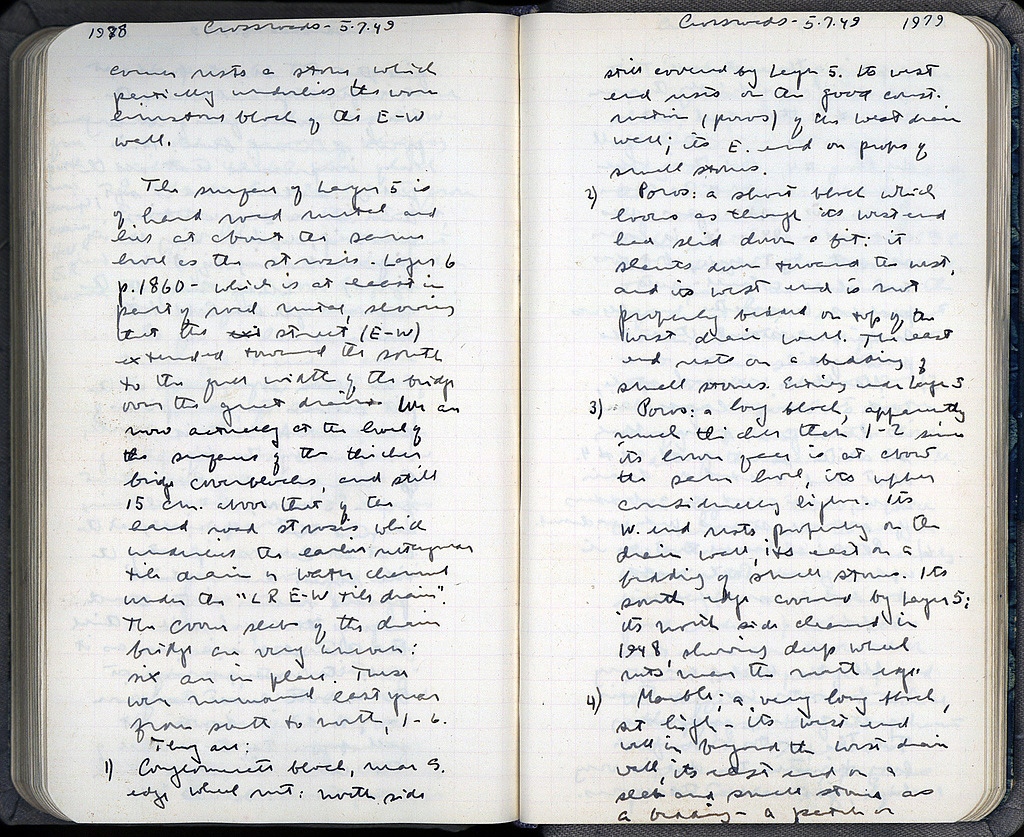 1978 Crossroads - 5.7.49
corner rests a stone, which
partially underlies the worn
limestone block of the E-W
wall.
The surface of Layer 5 is
of hard road metal and
lies at about the same
level as the strosis - Layer 6
p. 1860 - which is at least in
part of road metal, showing
that the street (E-W)
extended toward the south
to the full width of the bridge
over the great drain. We are
now actually at the level of
the surface of the thicker
bridge coverblocks, and still
15 cm. above that of the
hard road strosis which
underlies the earlier rectangular
tile drain or water channel
under the "LR E-W tile drain".
The cover slabs of the drain
bridge are very uneven:
six are in place. These
were numbered last year
from south to north, 1-6.
They are:
1) Conglomerate block, near S.
edge wheel rut: north side
Crossroads - 5.7.49 1979
still covered by Layer 5. Its west
end rests on the good const.
ruction (poros) of the west drain
wall; its E. end on props of
small stones.
2) Poros: a short block which
looks as though its west end
had slid down a bit: it
slants down toward the west,
and its west end is not
properly bedded on top of the
west drain wall. The east
end rests on a bedding of
small stones. Entirely under Layer 5
3) Poros: a long block, apparently
much thicker than 1-2 since
its lower face is at about
the same level, its upper
considerably higher. Its
W. end rests properly on the
drain wall, its east on a
bedding of small stones. Its
south edge covered by Layer 5;
its north side cleaned in
1948, showing deep wheel
ruts near the north edge.
4) Marble; a very long block,
set high - its west end
well in beyond the west drain
wall, its east end on a
slab and small stones as
a bedding - a patch or